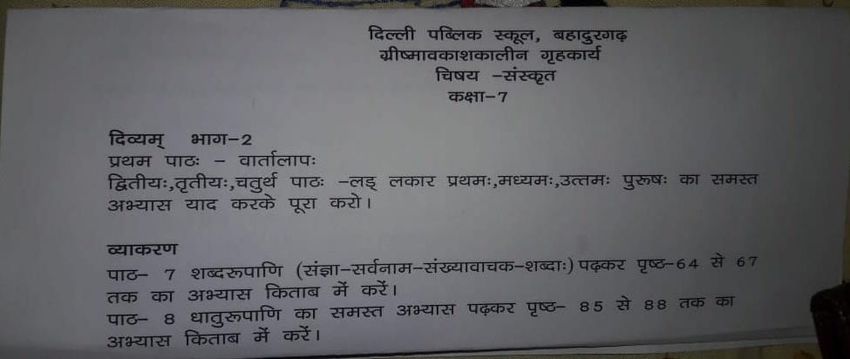 दिल्ली पब्लिक स्कूल, बहादुरगढ़
ग्रीष्मावकाशकालीन गृहकार्य
विषय -संस्कृत
कक्षा-7
दिव्यम् भाग-2
प्रथम पाठः - वार्तालापः
द्वितीयः,तृतीयः,चतुर्थ पाठः -लङ् लकार प्रथमः,मध्यमः,उत्तमः पुरूषः का समस्त
अभ्यास याद करके पूरा करो।
व्याकरण
पाठ- 7 शब्दरूपाणि (संज्ञा-सर्वनाम-संख्यावाचक-शब्दाः) पढ़कर पृष्ठ-64 से 67
तक का अभ्यास किताब में करें।
पाठ- 8 धातुरूपाणि का समस्त अभ्यास पढ़कर पृष्ठ- 85 से 88 तक का
अभ्यास किताब में करें।